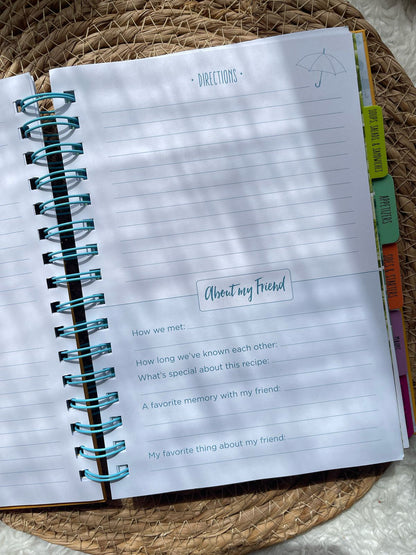 • DIRECTIONS •
SOUPS, SALADS, & SANDWICHES
APPETIZERS
About my Friend
How we met:
How long we've known each other:
What's special about this recipe:
A favorite memory with my friend:
My favorite thing about my friend: